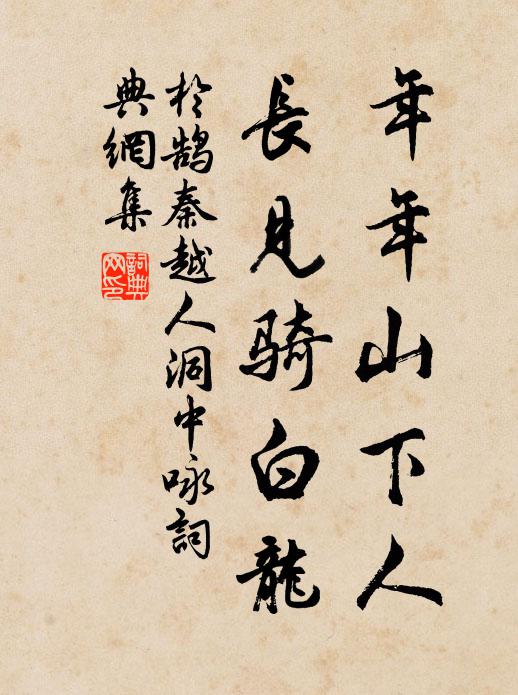 年年山下人
長見骑白龍
於鹄秦越人洞中咏詞
典網集
詞典
网印